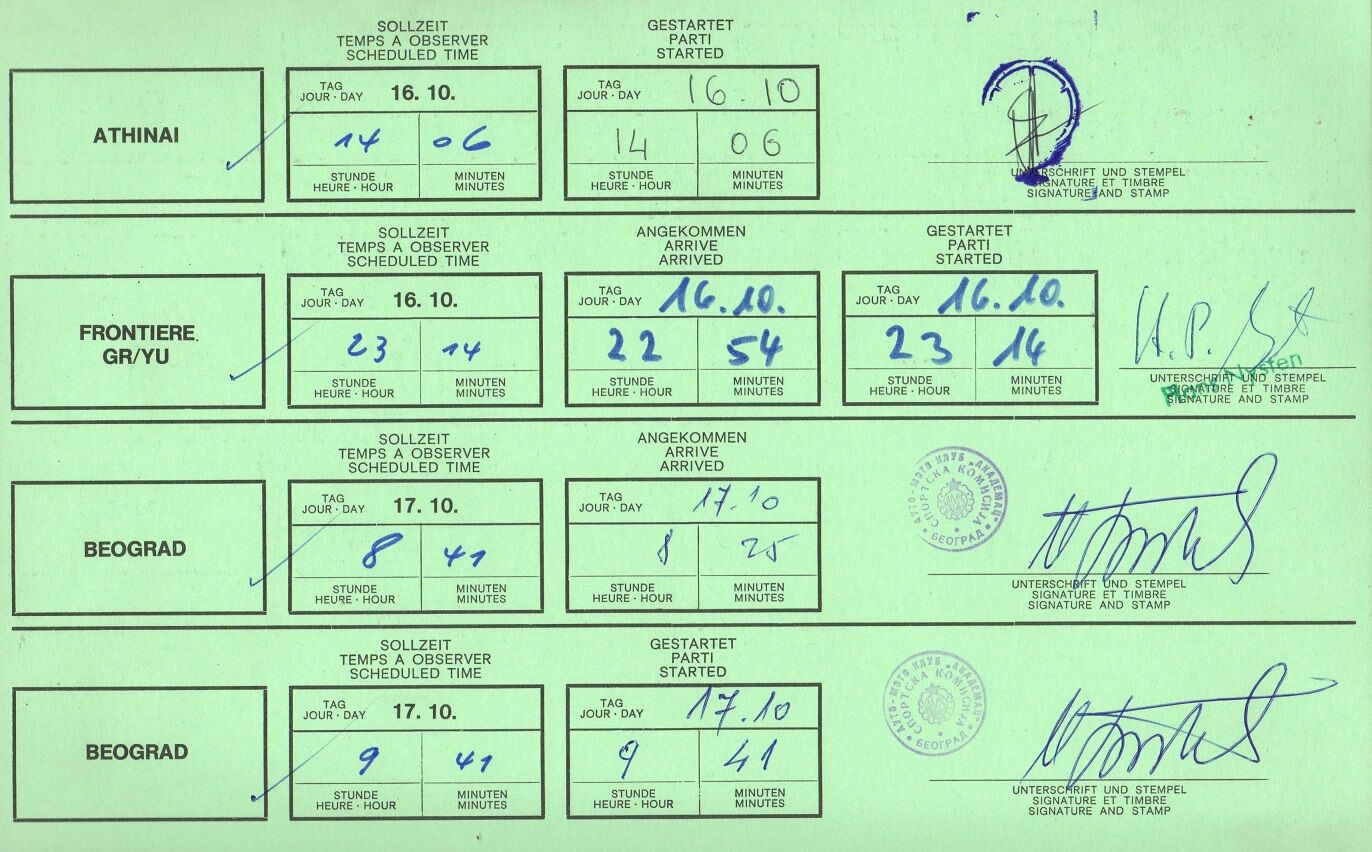 SOLLZEIT
TEMPS A OBSERVER
SCHEDULED TIME
GESTARTET
PARTI
STARTED
ATHINAI
TAG
JOUR · DAY 16. 10.
14 06
STUNDE
HEURE · HOUR
MINUTEN
MINUTES
TAG
JOUR · DAY 16.10
14 06
STUNDE
HEURE · HOUR
MINUTEN
MINUTES
UNTERSCHRIFT UND STEMPEL
SIGNATURE ET TIMBRE
SIGNATURE AND STAMP
SOLLZEIT
TEMPS A OBSERVER
SCHEDULED TIME
ANGEKOMMEN
ARRIVE
ARRIVED
GESTARTET
PARTI
STARTED
FRONTIERE
GR/YU
TAG
JOUR · DAY 16. 10.
23 14
STUNDE
HEURE · HOUR
MINUTEN
MINUTES
TAG
JOUR · DAY 16.10.
22 54
STUNDE
HEURE · HOUR
MINUTEN
MINUTES
TAG
JOUR · DAY 16.10.
23 14
STUNDE
HEURE · HOUR
MINUTEN
MINUTES
H.P.
Nysten
UNTERSCHRIFT UND STEMPEL
SIGNATURE ET TIMBRE
SIGNATURE AND STAMP
SOLLZEIT
TEMPS A OBSERVER
SCHEDULED TIME
ANGEKOMMEN
ARRIVE
ARRIVED
BEOGRAD
TAG
JOUR · DAY 17. 10.
8 41
STUNDE
HEURE · HOUR
MINUTEN
MINUTES
TAG
JOUR · DAY 17.10
8 25
STUNDE
HEURE · HOUR
MINUTEN
MINUTES
АУТО-МОТО КЛУБ „АКАДЕМАЦ"
СПОРТСКА КОМИСИЈА
БЕОГРАД
UNTERSCHRIFT UND STEMPEL
SIGNATURE ET TIMBRE
SIGNATURE AND STAMP
SOLLZEIT
TEMPS A OBSERVER
SCHEDULED TIME
GESTARTET
PARTI
STARTED
BEOGRAD
TAG
JOUR · DAY 17. 10.
9 41
STUNDE
HEURE · HOUR
MINUTEN
MINUTES
TAG
JOUR · DAY 17.10
9 41
STUNDE
HEURE · HOUR
MINUTEN
MINUTES
АУТО-МОТО КЛУБ „АКАДЕМАЦ"
СПОРТСКА КОМИСИЈА
БЕОГРАД
UNTERSCHRIFT UND STEMPEL
SIGNATURE ET TIMBRE
SIGNATURE AND STAMP